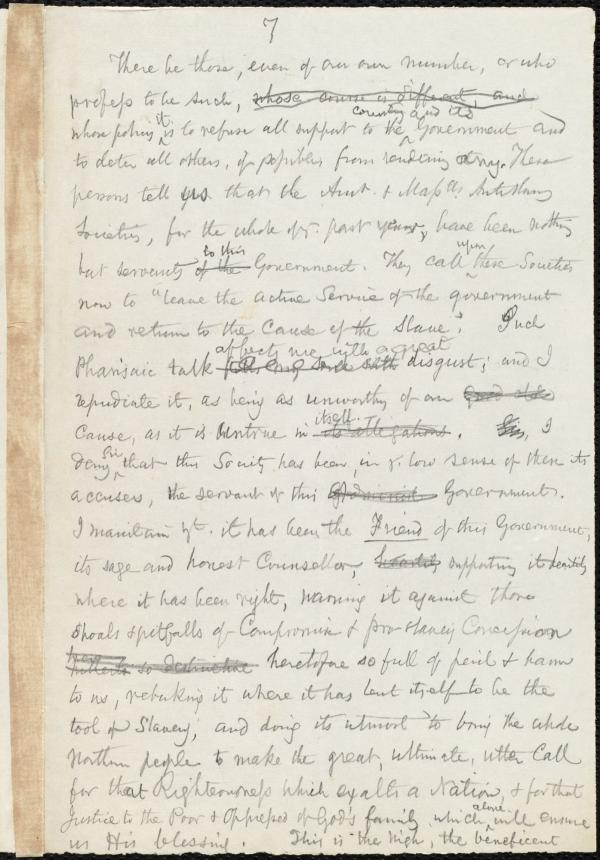 7
There be those, even of our own number, or who
profess to be such, whose course is different, and
whose policy it is to refuse all support to the country and its Government and
to deter all others, if possible, from rendering any. These
persons tell us that the Amt. & Massts. Antislavery
Societies, for the whole of ye. past years, have been nothing
but servants of the to this Government. They call upon these Societies
now to "leave the active Service of the government
and return to the Cause of the Slave". Such
Pharisaic talk affects me with a great disgust; and I
repudiate it, as being as unworthy of our
Cause, as it is untrue in its allegations itself. Sir, I
deny Sir that this Society has been, in ye. low sense of these its
accusers, the servant of this Government.
I maintain yt. it has been the Friend of this Government,
its sage and honest Counsellor, heartily supporting it heartily
where it has been right, warning it against those
shoals & pitfalls of Compromise & pro-slavery Concession
so destructive heretofore so full of peril & harm
to us, rebuking it where it has lent itself to be the
tool of Slavery, and doing its utmost to bring the whole
Northern people to make the great, ultimate, utter Call
for that Righteousness which exalts a Nation, & for that
Justice to the Poor & Oppressed of God's family which alone will ensure
us His blessing. This is the high, the beneficent